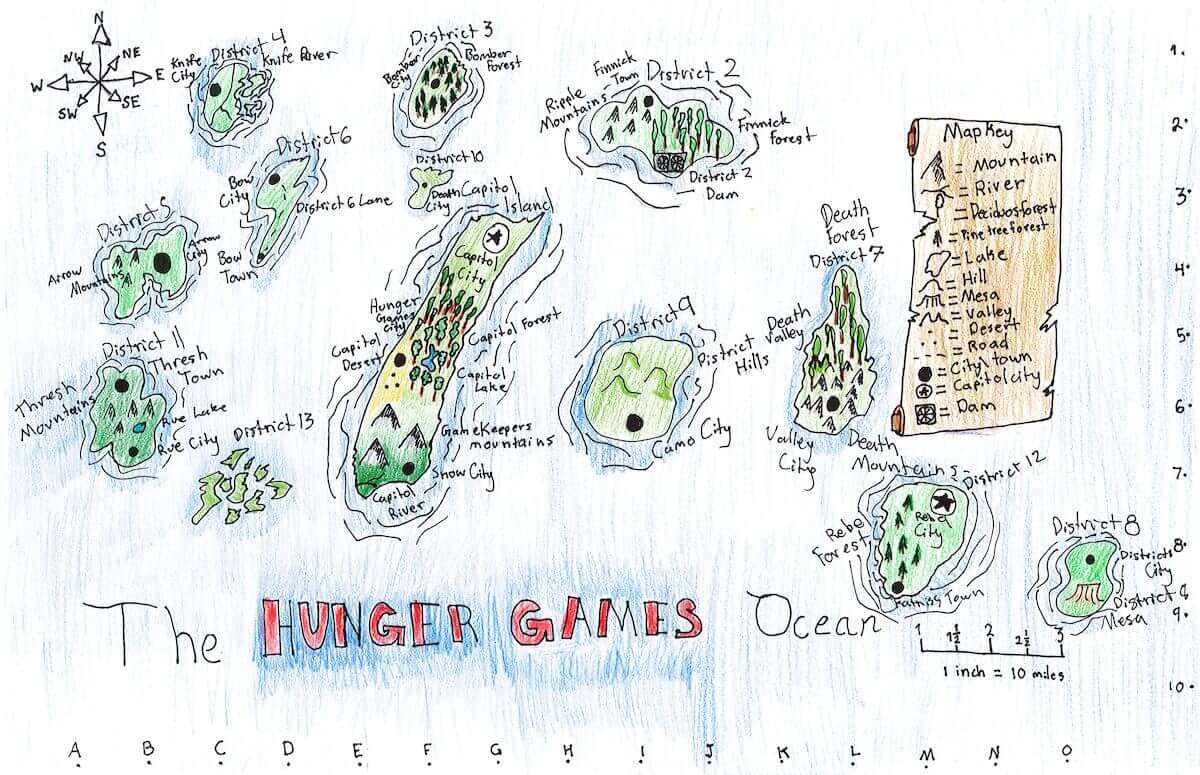 N
NW
NE
W
E
SW
SE
S
Knife
City
District 4
Knife River
District 3
Bomber
City
Bomber
Forest
Finnick
Town
District 2
Ripple
Mountains
Finnick
Forest
District 2
Dam
District 6
Bow
City
District 6 Lane
Bow
Town
District 10
Death
City
Capitol
Island
Capitol
City
District 5
Arrow
City
Arrow
Mountains
Hunger
Games
City
Capitol
Desert
Capitol Forest
Capitol
Lake
GameKeepers
mountains
Snow City
Capitol
River
District 11
Thresh
Town
Thresh
Mountains
Rue Lake
Rue City
District 13
District 9
District
Hills
Camo City
Death
Forest
District 7
Death
Valley
Valley
City
Death
Mountains
District 12
Rebel
City
Rebe
Forest
Katniss Town
District 8
District 8
City
District 8
Mesa
Map Key
= Mountain
= River
= Deciduosforest
= Pine tree forest
= Lake
= Hill
= Mesa
= Valley
= Desert
= Road
= City/town
= Capitol city
= Dam
The HUNGER GAMES Ocean
1 1½ 2 2½ 3
1 inch = 10 miles
1.
2.
3.
4.
5.
6.
7.
8.
9.
10.
A B C D E F G H I J K L M N O